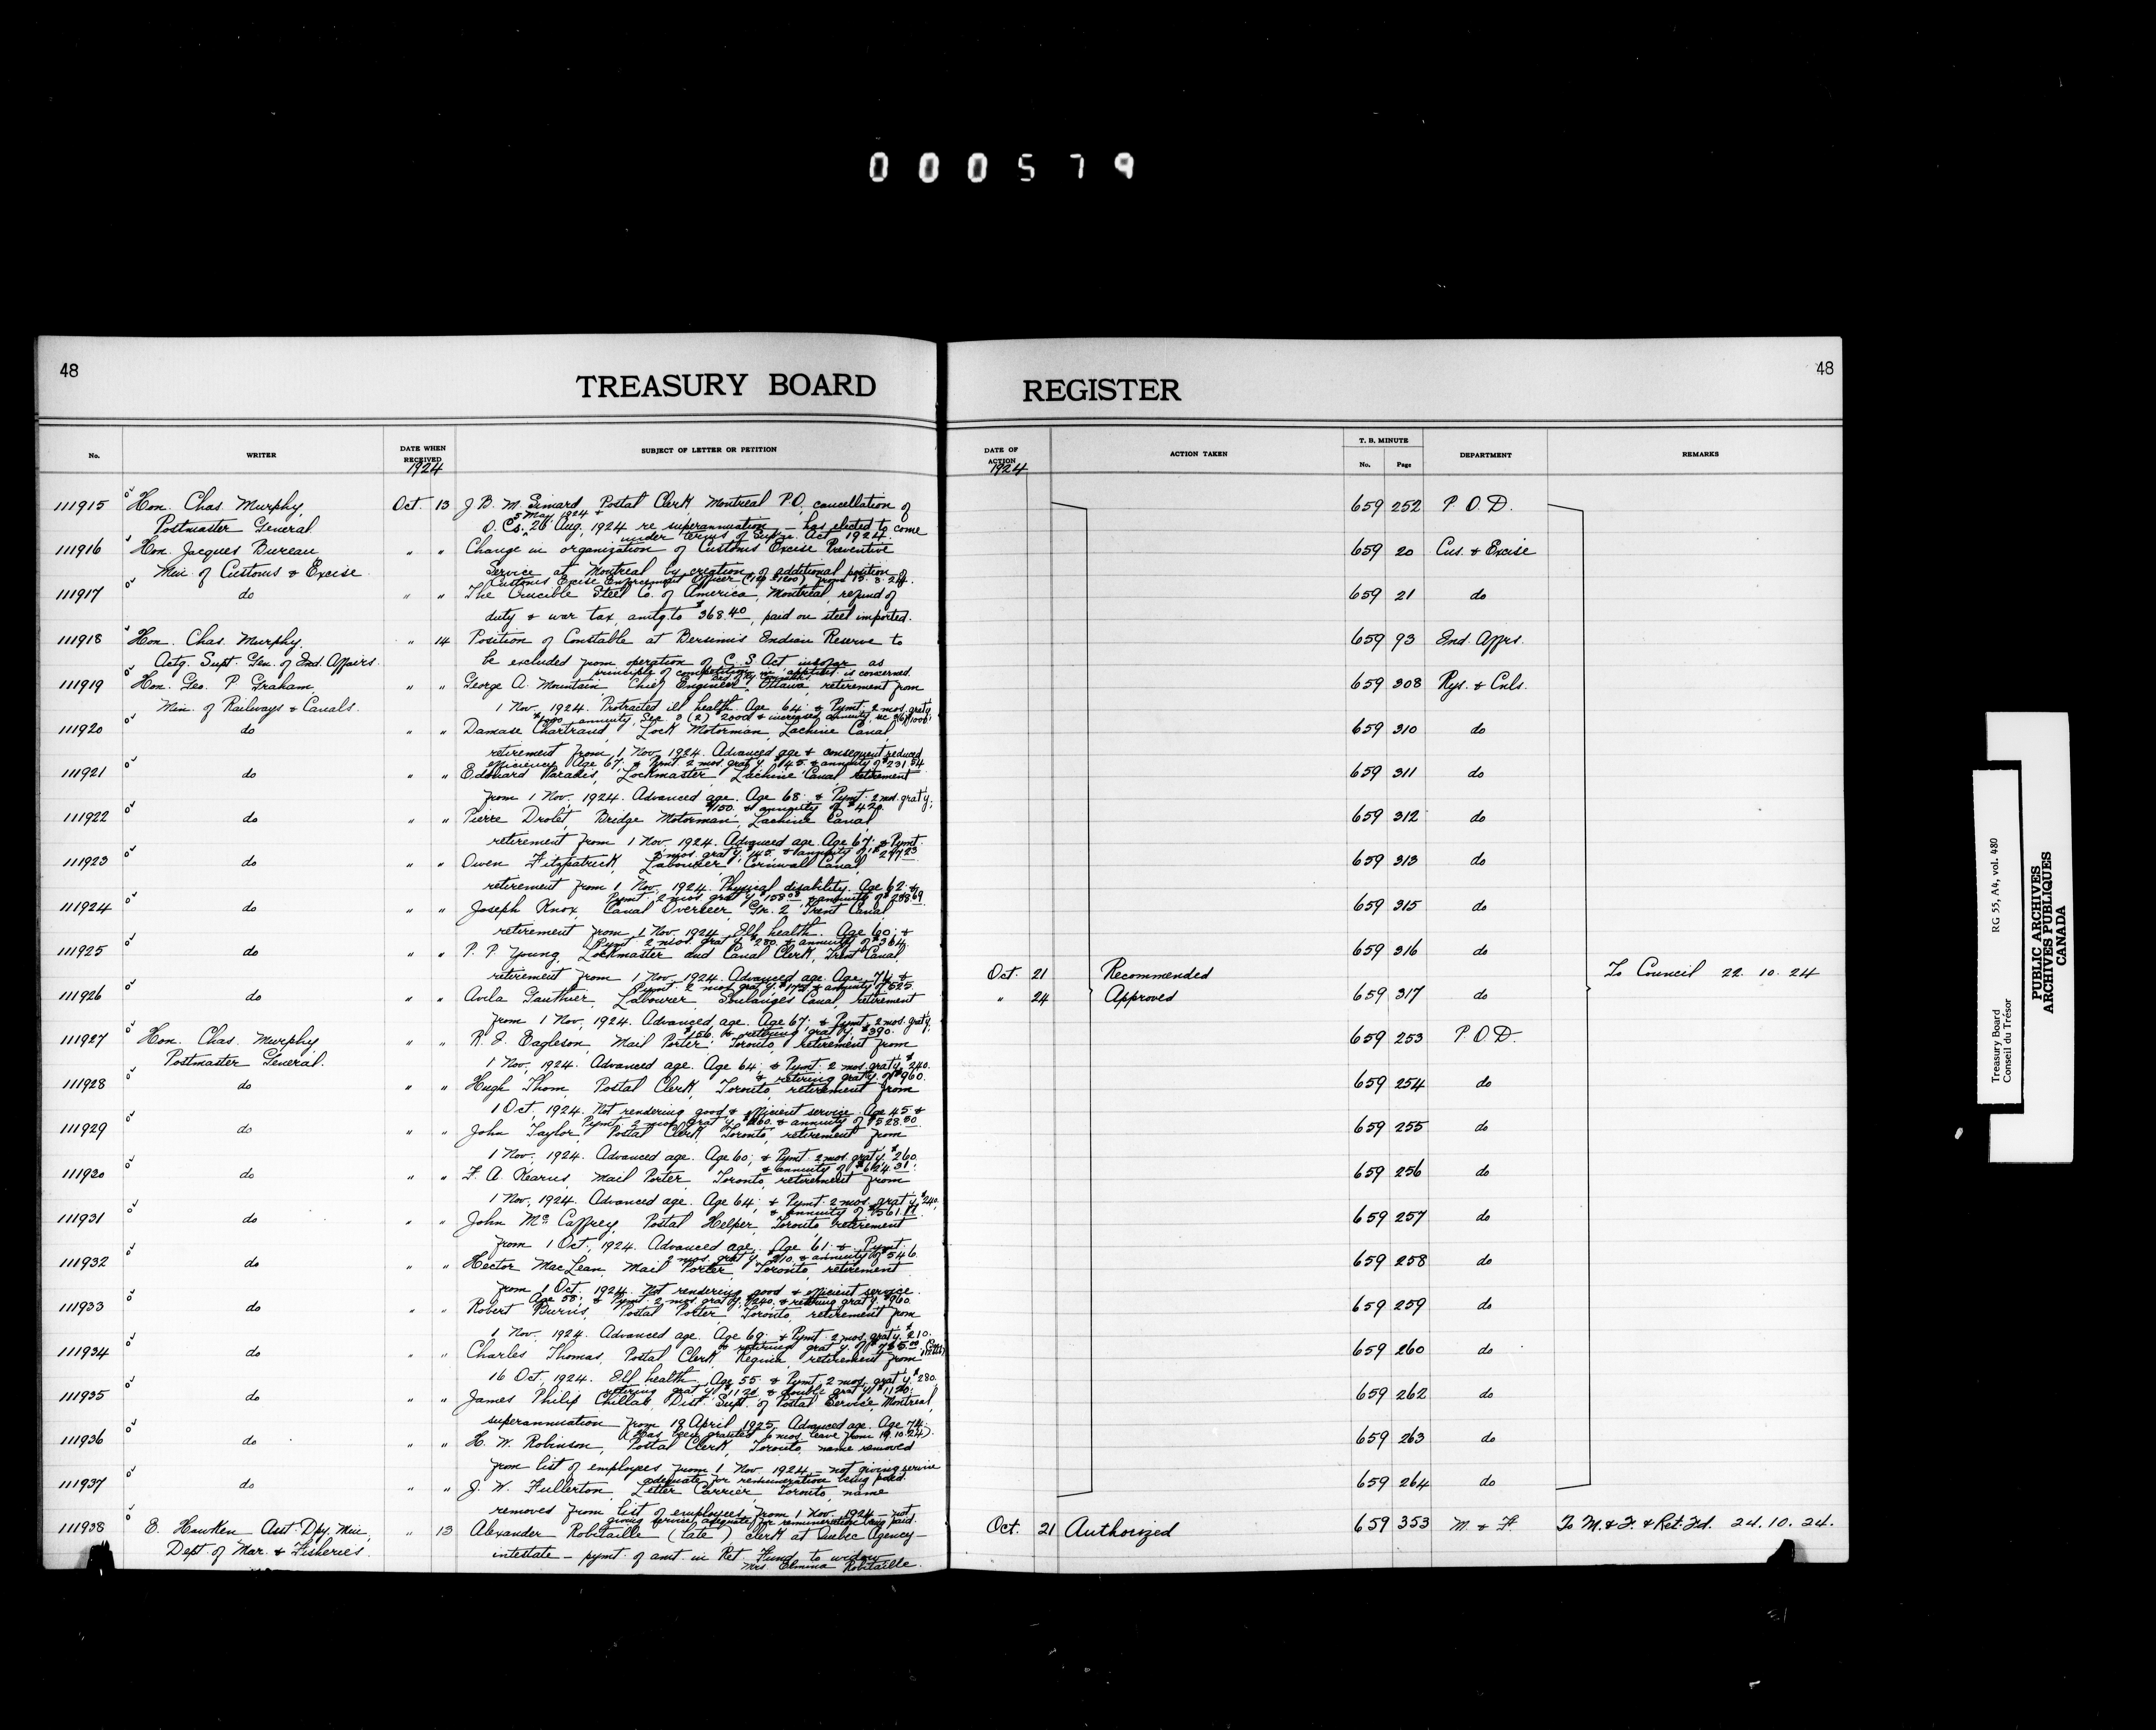 000579
48
TREASURY BOARD
REGISTER
48
No.
WRITER
DATE WHEN RECEIVED
1924
SUBJECT OF LETTER OR PETITION
DATE OF ACTION
1924
ACTION TAKEN
T. B. MINUTE
No.
Page
DEPARTMENT
REMARKS
111915 Hon. Chas. Murphy, Oct. 13 J. B. M. Simard, Postal Clerk Montreal P.O. cancellation of 659 252 P. O. D.
5 May 1924 &
Postmaster General O. Cs. 26 Aug. 1924 re superannuation – has elected to come
under terms of Supn. Act 1924.
111916 Hon. Jacques Bureau " " Change in organization of Customs Excise Preventive 659 20 Cus. & Excise
Min. of Customs & Excise Service at Montreal by creation of additional position of
Customs Excise Enforcement Officer from 15. 8. 24.
111917 do " " The Crucible Steel Co. of America, Montreal, refund of 659 21 do
duty & war tax, amtg. to $368.40, paid on steel imported.
111918 Hon. Chas. Murphy, " 14 Position of Constable at Bersimis Indian Reserve to 659 93 Ind. Affrs.
Actg. Supt. Gen. of Ind. Affairs. be excluded from operation of C. S. Act insofar as
principle of competition is concerned.
111919 Hon. Geo. P. Graham, " " George A. Mountain, Chief Engineer, Ottawa, retirement from 659 308 Rys. & Cnls.
Min. of Railways & Canals. 1 Nov. 1924. Protracted ill health. Age 64; & Pymt. 2 mos. grat'y.
111920 do " " Damase Chartrand, Lock Motorman, Lachine Canal, 659 310 do
retirement from 1 Nov. 1924. Advanced age & consequent reduced
efficiency. Age 67; & Pymt. 2 mos. grat'y. $145. & annuity of $231.54
111921 do " " Edouard Paradis, Lockmaster, Lachine Canal retirement 659 311 do
from 1 Nov. 1924. Advanced age. Age 68; & Pymt. 2 mos. grat'y;
$150. & annuity of $420.
111922 do " " Pierre Drolet, Bridge Motorman, Lachine Canal 659 312 do
retirement from 1 Nov. 1924. Advanced age. Age 67; & Pymt.
2 mos. grat'y. $145. & annuity of $297.23
111923 do " " Owen Fitzpatrick, Labourer, Cornwall Canal, 659 313 do
retirement from 1 Nov. 1924. Physical disability. Age 62; &
Pymt. 2 mos. grat'y. & annuity of $288.69.
111924 do " " Joseph Knox, Canal Overseer, Gr. 2, Trent Canal 659 315 do
retirement from 1 Nov. 1924. Ill health. Age 60; &
Pymt. 2 mos. grat'y. $280. & annuity of $364.
111925 do " " P. P. Young, Lockmaster and Canal Clerk, Trent Canal, 659 316 do
retirement from 1 Nov. 1924. Advanced age. Age 74; & Oct. 21 Recommended To Council 22. 10. 24
Pymt. 2 mos. grat'y. & annuity of $525.
111926 do " " Avila Gauthier, Labourer, Soulanges Canal, retirement " 24 Approved 659 317 do
from 1 Nov. 1924. Advanced age. Age 67; & Pymt. 2 mos. grat'y.
$156. & retiring grat'y. $390.
111927 Hon. Chas. Murphy " " R. J. Eagleson, Mail Porter, Toronto, retirement from 659 253 P. O. D.
Postmaster General. 1 Nov. 1924. Advanced age. Age 64; & Pymt. 2 mos. grat'y. $240.
& retiring grat'y. of $960.
111928 do " " Hugh Thom, Postal Clerk, Toronto retirement from 659 254 do
1 Oct. 1924. Not rendering good & efficient service. Age 45; &
Pymt. 2 mos. grat'y. $260. & annuity of $528.80.
111929 do " " John Taylor, Postal Clerk, Toronto, retirement from 659 255 do
1 Nov. 1924. Advanced age. Age 60; & Pymt. 2 mos. grat'y. $260.
& annuity of $624.31.
111930 do " " F. A. Kearns, Mail Porter, Toronto, retirement from 659 256 do
1 Nov. 1924. Advanced age. Age 64; & Pymt. 2 mos. grat'y. $240.
& annuity of $561.
111931 do " " John McCaffrey, Postal Helper, Toronto retirement 659 257 do
from 1 Oct. 1924. Advanced age. Age 61; & Pymt.
2 mos. grat'y. $210. & annuity of $546.
111932 do " " Hector MacLean, Mail Porter, Toronto, retirement 659 258 do
from 1 Oct. 1924. Not rendering good & efficient service.
Age 58; & Pymt. 2 mos. grat'y. $240. & retiring grat'y. $960.
111933 do " " Robert Burns, Postal Porter, Toronto, retirement from 659 259 do
1 Nov. 1924. Advanced age. Age 69; & Pymt. 2 mos. grat'y. $210.
& retiring grat'y. of
111934 do " " Charles Thomas, Postal Clerk, Regina, retirement from 659 260 do
16 Oct. 1924. Ill health. Age 55; & Pymt. 2 mos. grat'y. $280.
retiring grat'y. $1120. & double grat'y. $1120.
111935 do " " James Philip Chillas, Dist. Supt. of Postal Service, Montreal, 659 262 do
superannuation from 19 April 1925. Advanced age. Age 74.
(Has been granted 6 mos. leave from 19.10.24).
111936 do " " H. W. Robinson, Postal Clerk, Toronto, name removed 659 263 do
from list of employees from 1 Nov. 1924 – not giving service
adequate for remuneration being paid.
111937 do " " J. W. Fullerton, Letter Carrier, Toronto, name 659 264 do
removed from list of employees from 1 Nov. 1924 – not
giving service adequate for remuneration being paid.
111938 E. Hawken Asst. Dpy. Min., " 13 Alexander Robitaille (late) clerk at Quebec Agency – Oct. 21 Authorized 659 353 M. & F. To M. & F. & Ret. Fd. 24. 10. 24.
Dept. of Mar. & Fisheries. intestate – pymt. of amt. in Ret. Fund to widow
Mrs. Elmina Robitaille.
Treasury Board
Conseil du Trésor
RG 55, A4, vol. 480
PUBLIC ARCHIVES
ARCHIVES PUBLIQUES
CANADA